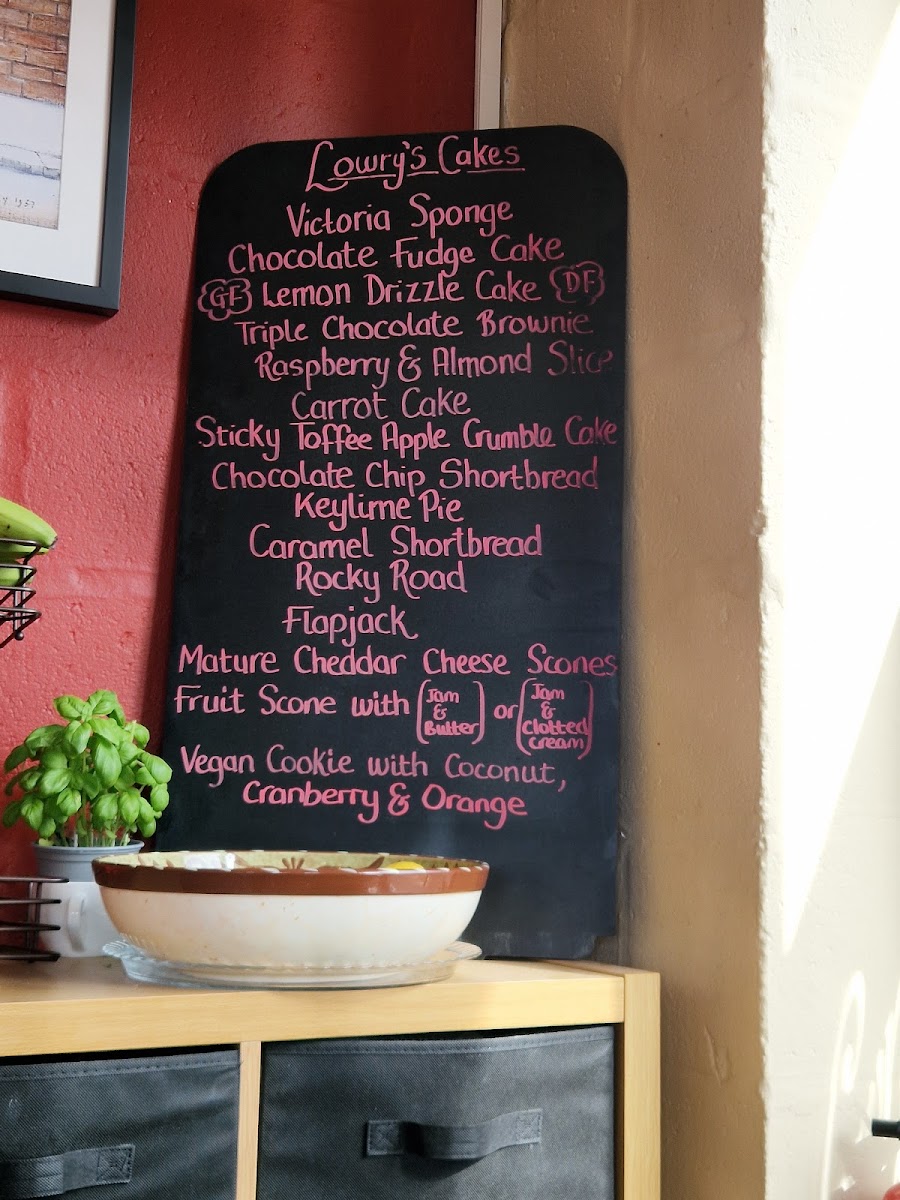 Lowry's Cakes
Victoria Sponge
Chocolate Fudge Cake
GF Lemon Drizzle Cake DF
Triple Chocolate Brownie
Raspberry & Almond Slice
Carrot Cake
Sticky Toffee Apple Crumble Cake
Chocolate Chip Shortbread
Keylime Pie
Caramel Shortbread
Rocky Road
Flapjack
Mature Cheddar Cheese Scones
Fruit Scone with (Jam & Butter) or (Jam & Clotted Cream)
Vegan Cookie with Coconut,
Cranberry & Orange